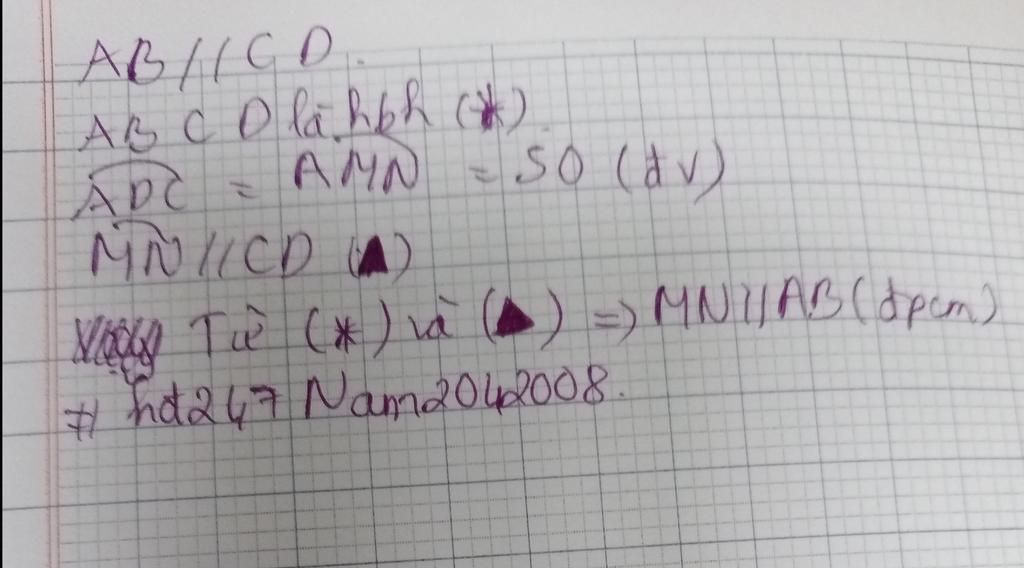 AB // CD.
ABCD là hbh (*).
ADC = AMN = 50 (đv)
MN // CD (▲)
Từ (*) và (▲) => MN // AB (đpcm)
# hd247 Nam2042008.